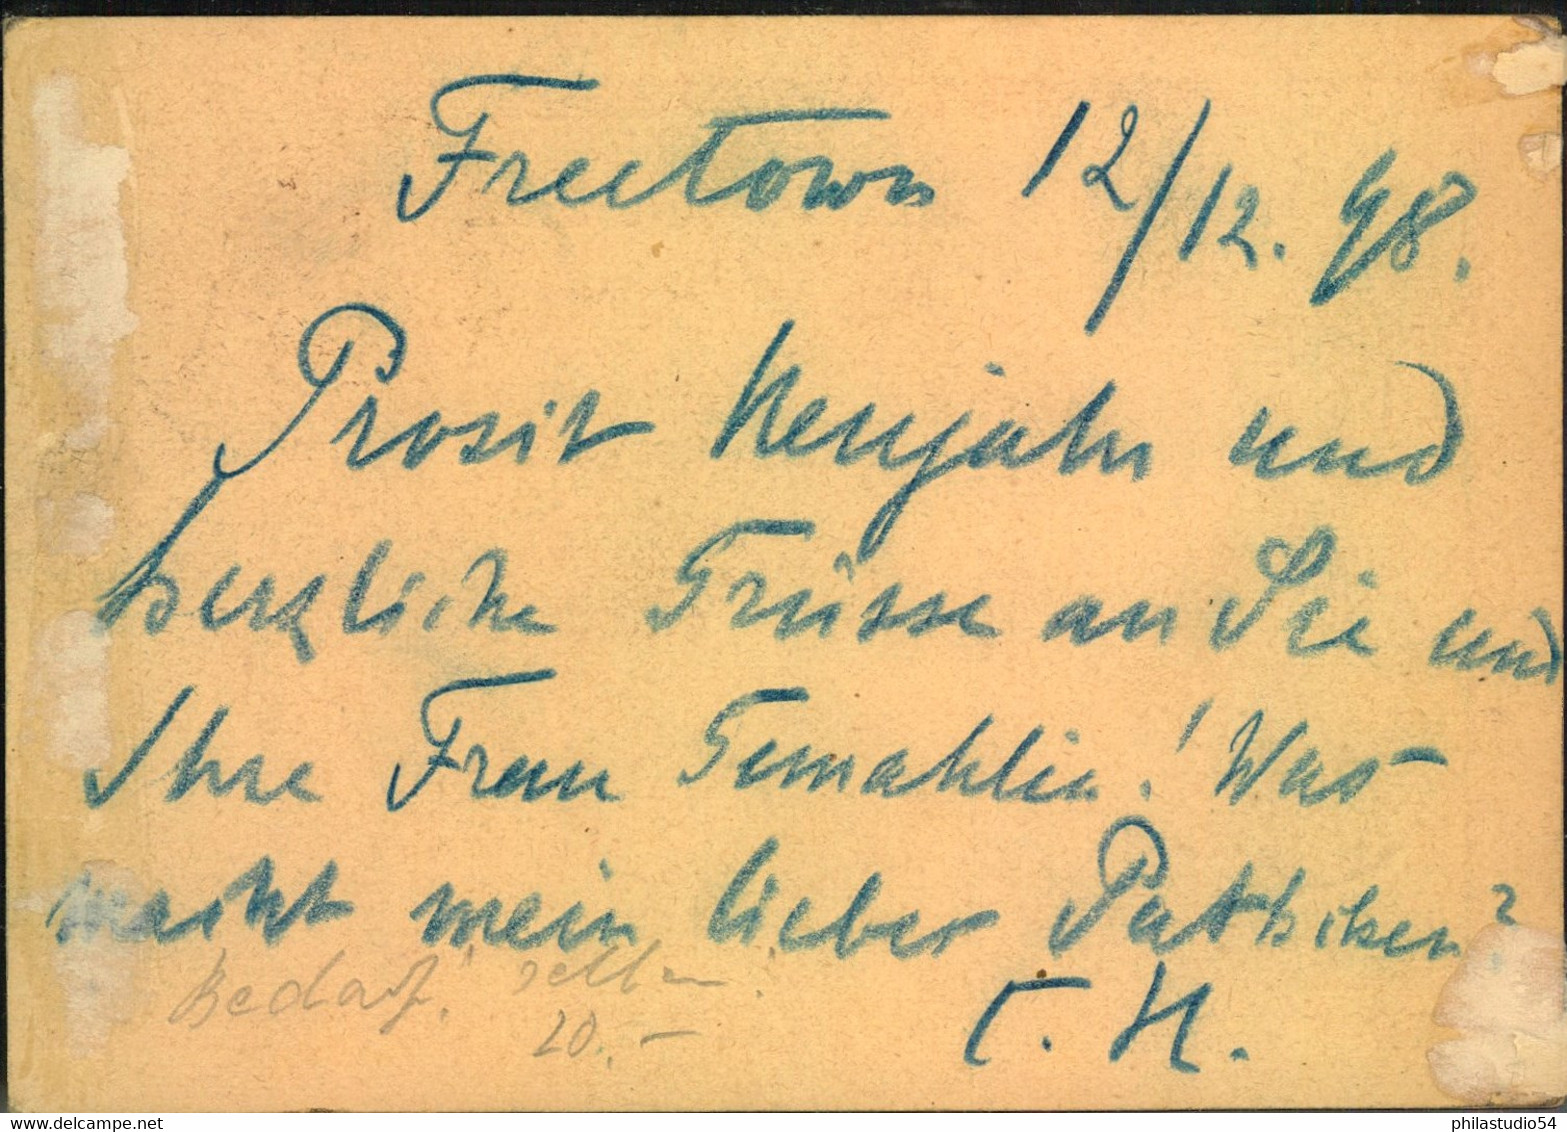 Freetown 12/12. 98.
Prosit Neujahr und
herzliche Grüsse an Sie und
Ihre Frau Gemahlin! Was
macht mein lieber Pathchen?
Bedarf! selten!
20.-
G. H.
www.delcampe.net
philastudio54